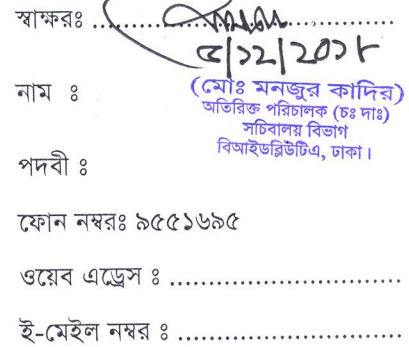 স্বাক্ষরঃ ....................................
৫/১২/২০১৮
নাম ঃ (মোঃ মনজুর কাদির)
অতিরিক্ত পরিচালক (চঃ দাঃ)
সচিবালয় বিভাগ
বিআইডব্লিউটিএ, ঢাকা।
পদবী ঃ
ফোন নম্বরঃ ৯৫৫১৬৯৫
ওয়েব এড্রেস ঃ ..............................
ই-মেইল নম্বর ঃ .............................